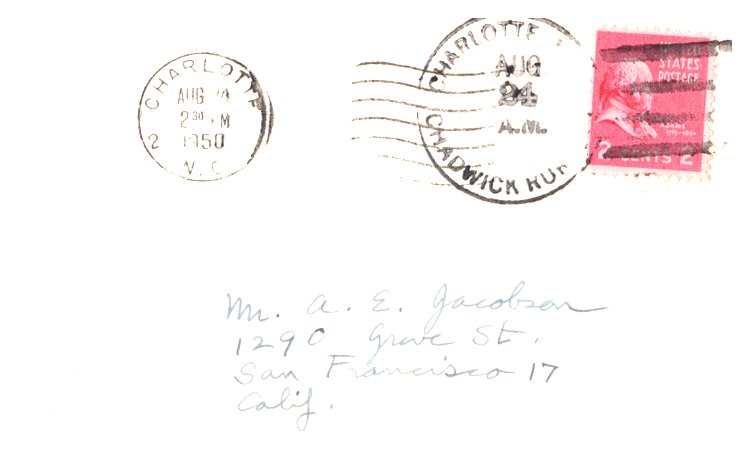 CHARLOTTE
AUG 24
2 30 M
2 1950
N. C.
CHARLOTTE
AUG
24
A.M.
CHADWICK RUR
STATES
POSTAGE
ADAMS
2 CENTS 2
Mr. A. E. Jacobson
1290 Grove St.
San Francisco 17
Calif.